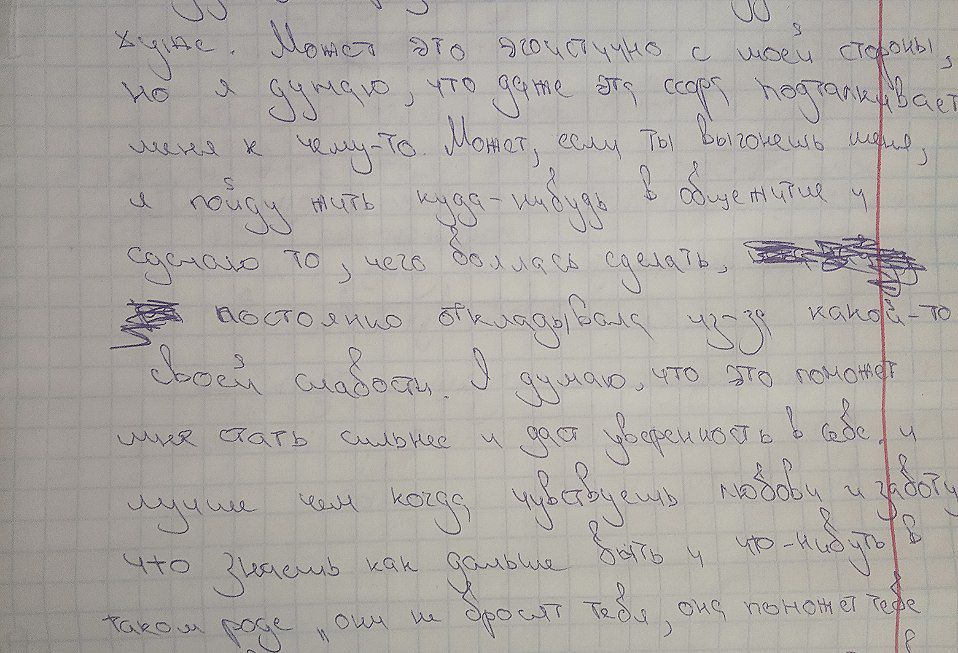 хуже. Может это эгоистично с моей стороны,
но я думаю, что даже эта ссора подталкивает
меня к чему-то. Может, если ты выгонешь меня,
я пойду жить куда-нибудь в общежитие и
сделаю то, чего боялась сделать,
постоянно откладывала из-за какой-то
своей слабости. Я думаю, что это поможет
мня стать сильнее и даст уверенность в себе, и
лучше чем когда чувствуешь любови и заботу
что знаешь как дальше быть и что-нибуть в
таком роде „они не бросят тебя, она поможет тебе